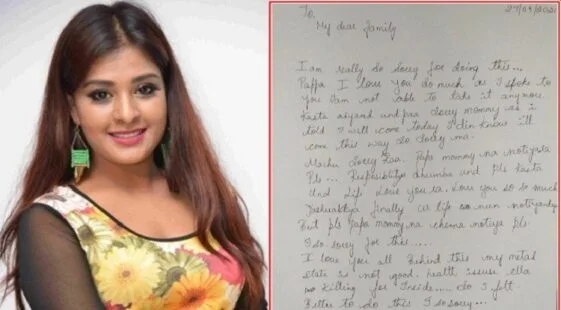 To
27/09/2021
My dear family
I am really so sorry for doing this...
Pappa I love you so much as I spoke to
you I am not able to take it anymore
kasta aiyand unpaa sorry mommy as i
told I will come today I din know ill
come this way so sorry ma.
Machu sorry kaa. Papa mommy na
Pls ... dhumba and Pls kasta
And life love you sa. Love you so so much
finally life nun
But pls Papa mommy na chena pls
I so sorry for this.....
I love you all Behind this my metal
state is not good. healtt issuse ella
killing for Inside..... so I felt
Better to do this I so sorry...